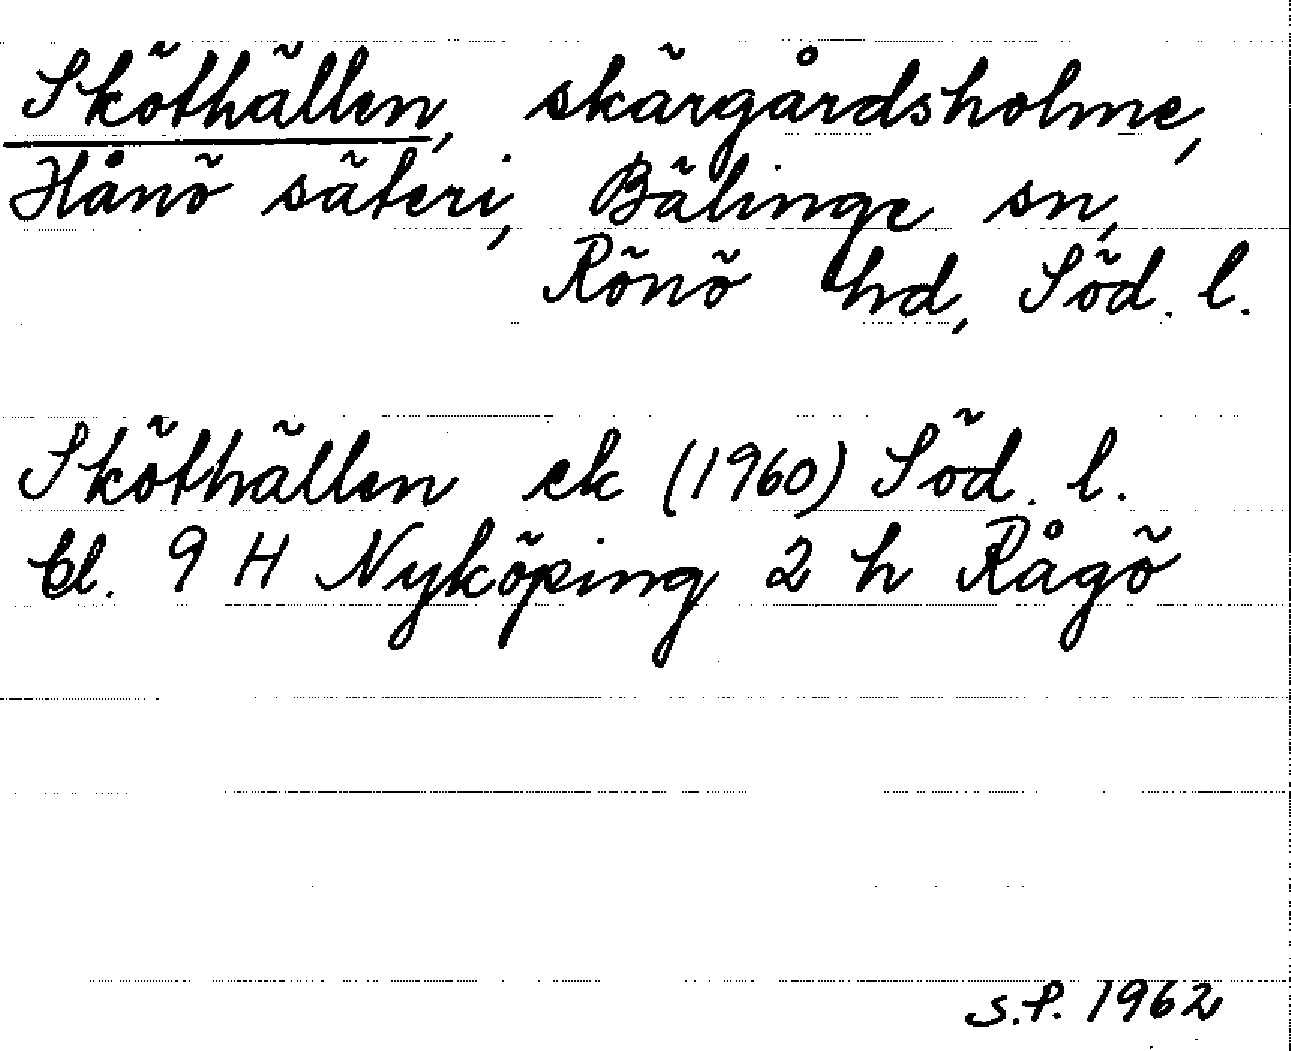 Sköthällen, skärgårdsholme,
Hånö säteri, Bälinge sn,
Rönö hd, Söd. l.
Sköthällen ek (1960) Söd. l.
bl. 9 H Nyköping 2 h Rågö
S.P. 1962